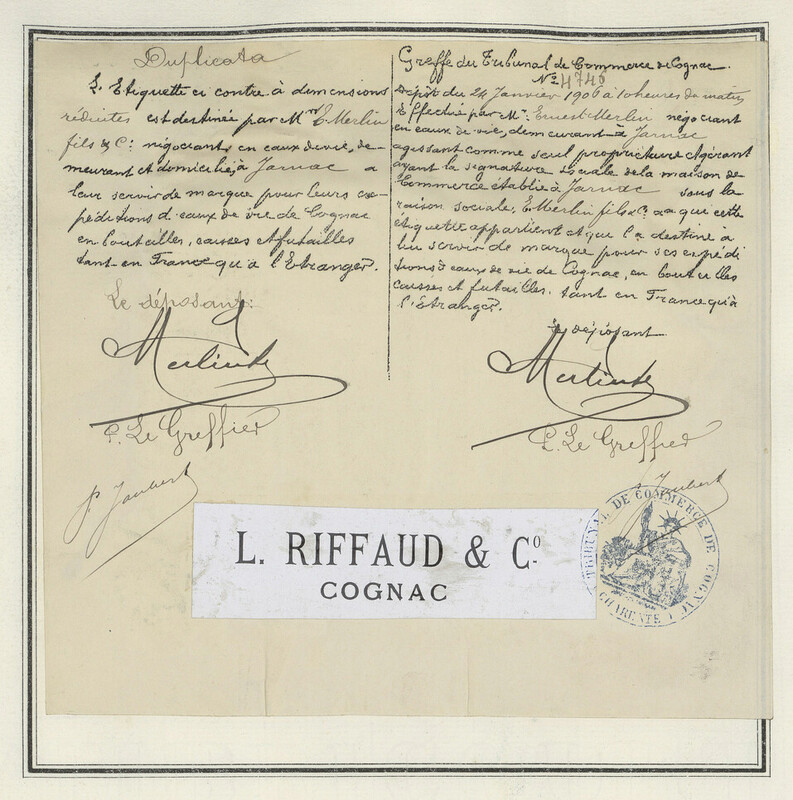 Duplicata
L'Etiquette ci contre à dimensions
réduites est destinée par Mrs E. Merlin
fils & Cie négociants en eaux de vie, de-
meurant et domicilié, à Jarnac a
leur servir de marque pour leurs ex-
péditions d'eaux de vie de Cognac
en bouteilles, caisses et futailles
tant en France qu'à l'Etranger.
Le déposant:
Merlin
P. Le Greffier
P. Joubert
Greffe du Tribunal de Commerce de Cognac.
No 4746
Dépôt du 24 Janvier 1906 à 10 heures du matin
Effectué par Mr. Ernest Merlin négociant
en eaux de vie, demeurant à Jarnac
agissant comme seul propriétaire et gérant
ayant la signature sociale de la maison de
Commerce établie à Jarnac sous la
raison sociale, E. Merlin fils & Cie a qui cette
étiquette appartient et qui l'a destiné à
lui servir de marque pour ses expédi
tions d'eaux de vie de Cognac, en bouteilles
caisses et futailles. tant en France qu'à
l'Etranger.
Le déposant
Merlin
P. Le Greffier
P. Joubert
L. RIFFAUD & Co.
COGNAC
TRIBUNAL DE COMMERCE DE COGNAC
CHARENTE